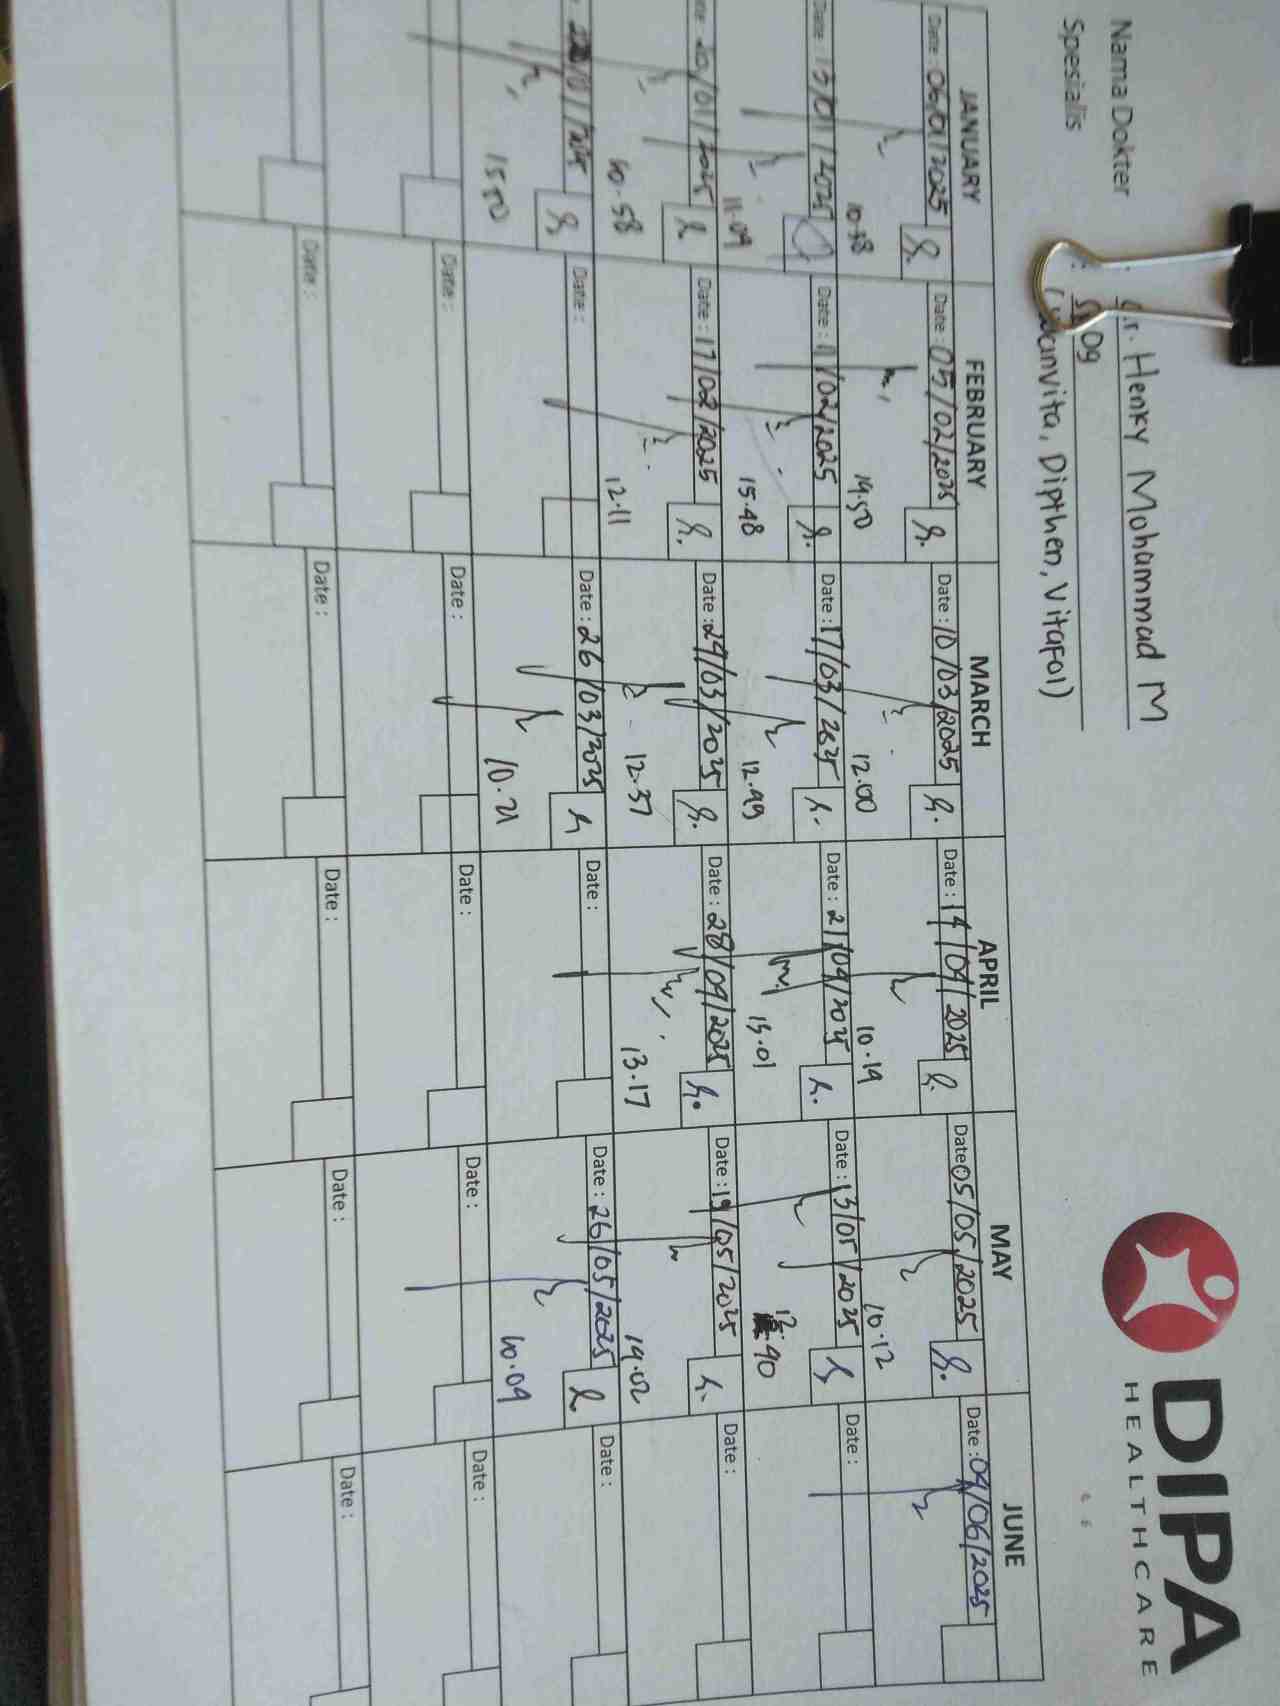 DIPA
HEALTHCARE
Nama Dokter : dr. Henky Mohammad M
Spesialis : SpOg
(Wanvita, Dipthen, Vitafol)
JANUARY FEBRUARY MARCH APRIL MAY JUNE
Date : 06/01/2025 Date : 05/02/2025 Date : 10/03/2025 Date : 14/04/2025 Date : 05/05/2025 Date : 04/06/2025
10.38 14.50 12.00 10.14 10.12
Date : 13/01/2025 Date : 11/02/2025 Date : 17/03/2025 Date : 21/04/2025 Date : 13/05/2025 Date :
11.09 15.48 12.49 15.01 40
Date : 20/01/2025 Date : 17/02/2025 Date : 24/03/2025 Date : 28/04/2025 Date : 19/05/2025 Date :
10.58 12.11 12.37 13.17 14.02
/01/2025 Date : Date : 26/03/2025 Date : Date : 26/05/2025 Date :
15.50 10.21 10.09
Date : Date : Date : Date : Date :
Date : Date : Date : Date : Date :